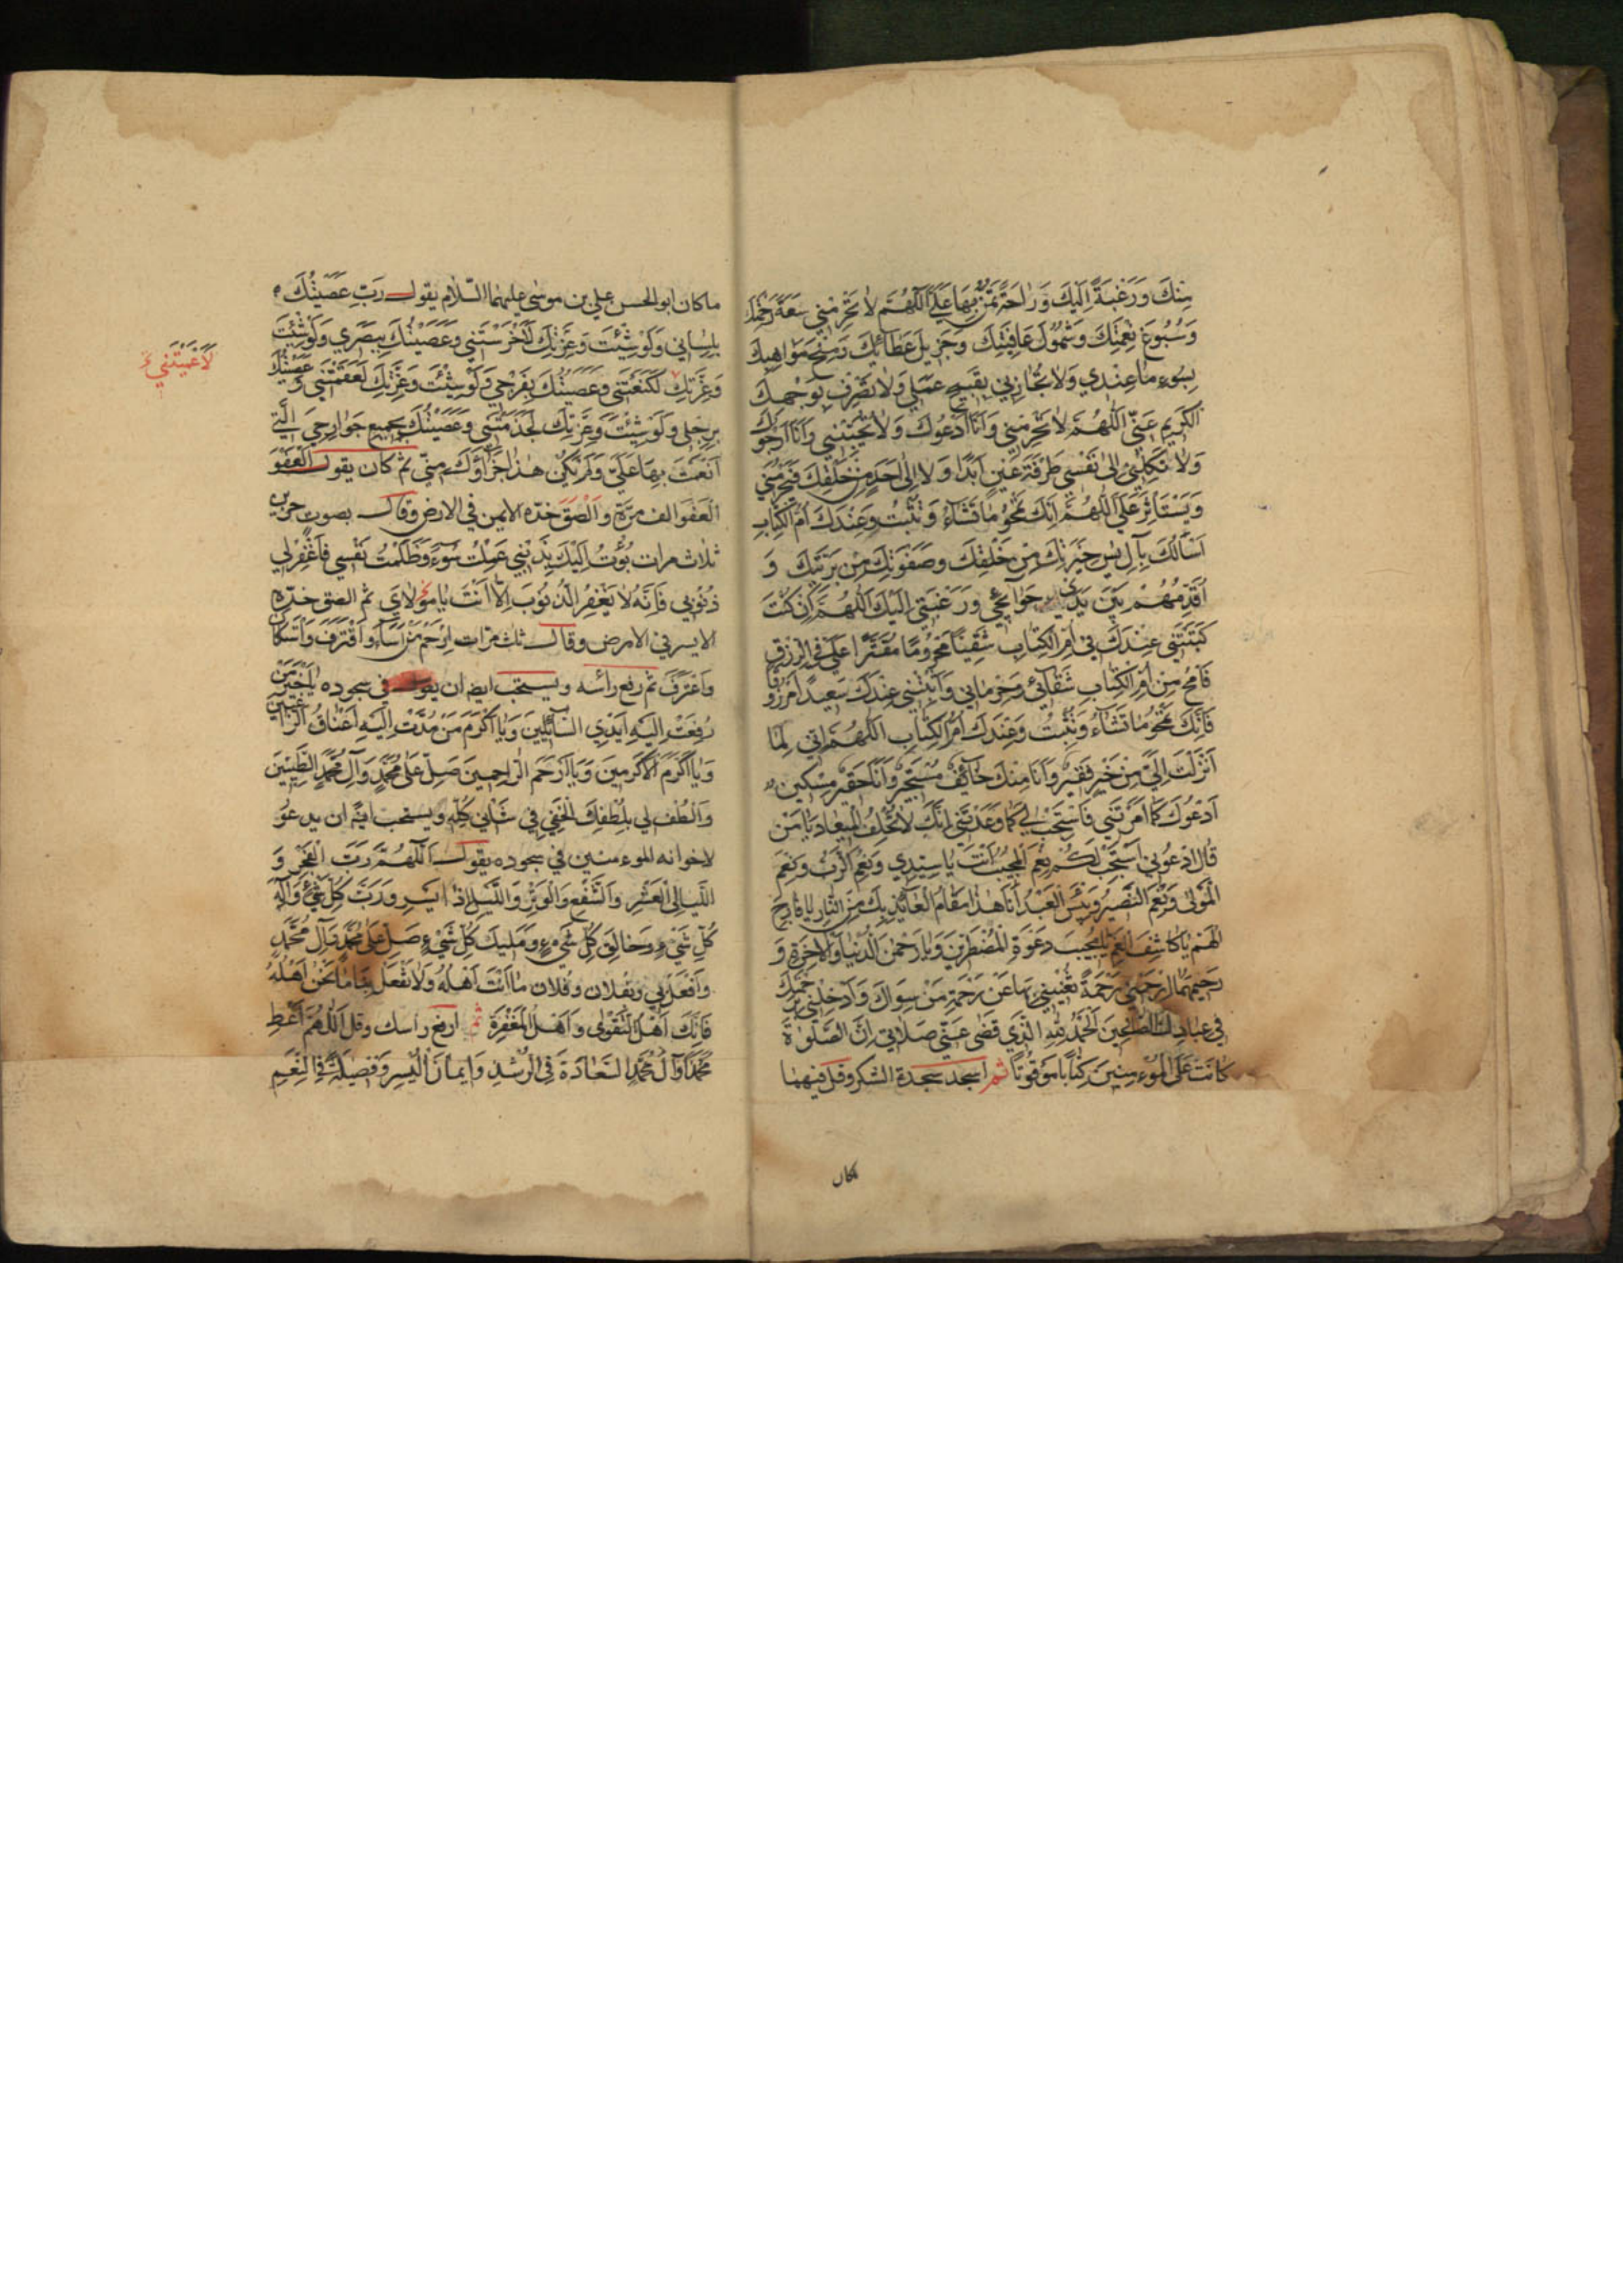 مِنْكَ وَرَغْبَةً اِلَيْكَ وَرَاحَةً تَمُنُّ بِهَا عَلَيَّ اَللّٰهُمَّ لَا تَحْرِمْنِي سَعَةَ رَحْمَتِكَ
وَسُبُوغَ نِعْمَتِكَ وَشُمُولَ عَافِيَتِكَ وَجَزِيلَ عَطَائِكَ وَمِنَحَ مَوَاهِبِكَ
بِسُوءِ مَا عِنْدِي وَلَا تُجَازِنِي بِقَبِيحِ عَمَلِي وَلَا تَصْرِفْ بِوَجْهِكَ
الْكَرِيمِ عَنِّي اَللّٰهُمَّ لَا تَحْرِمْنِي وَاَنَا اَدْعُوكَ وَلَا تُخَيِّبْنِي وَاَنَا اَرْجُوكَ
وَلَا تَكِلْنِي اِلَى نَفْسِي طَرْفَةَ عَيْنٍ اَبَدًا وَلَا اِلَى اَحَدٍ مِنْ خَلْقِكَ فَيَحْرِمَنِي
وَيَسْتَأْثِرَ عَلَيَّ اَللّٰهُمَّ اِنَّكَ تَمْحُو مَا تَشَاءُ وَتُثْبِتُ وَعِنْدَكَ اُمُّ الْكِتَابِ
اَسْاَلُكَ بِآلِ يٰسٓ خِيَرَتِكَ مِنْ خَلْقِكَ وَصَفْوَتِكَ مِنْ بَرِيَّتِكَ وَ
اُقَدِّمُهُمْ بَيْنَ يَدَيْ حَوَائِجِي وَرَغْبَتِي اِلَيْكَ اَللّٰهُمَّ اِنْ كُنْتَ
كَتَبْتَنِي عِنْدَكَ فِي اُمِّ الْكِتَابِ شَقِيًّا مَحْرُومًا مُقَتَّرًا عَلَيَّ فِي الرِّزْقِ
فَامْحُ مِنْ اُمِّ الْكِتَابِ شَقَائِي وَحِرْمَانِي وَاَثْبِتْنِي عِنْدَكَ سَعِيدًا مَرْزُوقًا
فَاِنَّكَ تَمْحُو مَا تَشَاءُ وَتُثْبِتُ وَعِنْدَكَ اُمُّ الْكِتَابِ اَللّٰهُمَّ اِنِّي لِمَا
اَنْزَلْتَ اِلَيَّ مِنْ خَيْرٍ فَقِيرٌ وَاَنَا مِنْكَ خَائِفٌ مُسْتَجِيرٌ وَاَنَا حَقِيرٌ مِسْكِينٌ
اَدْعُوكَ كَمَا اَمَرْتَنِي فَاسْتَجِبْ لِي كَمَا وَعَدْتَنِي اِنَّكَ لَا تُخْلِفُ الْمِيعَادَ يَا مَنْ
قَالَ ادْعُونِي اَسْتَجِبْ لَكُمْ نِعْمَ الْمُجِيبُ اَنْتَ يَا سَيِّدِي وَنِعْمَ الرَّبُّ وَنِعْمَ
الْمَوْلَى وَنِعْمَ النَّصِيرُ وَبِئْسَ الْعَبْدُ اَنَا هٰذَا مَقَامُ الْعَائِذِ بِكَ مِنَ النَّارِ يَا فَارِجَ
الْهَمِّ يَا كَاشِفَ الْغَمِّ يَا مُجِيبَ دَعْوَةِ الْمُضْطَرِّينَ وَيَا رَحْمٰنَ الدُّنْيَا وَالْاٰخِرَةِ وَ
رَحِيمَهُمَا ارْحَمْنِي رَحْمَةً تُغْنِينِي بِهَا عَنْ رَحْمَةِ مَنْ سِوَاكَ وَاَدْخِلْنِي بِرَحْمَتِكَ
فِي عِبَادِكَ الصَّالِحِينَ اَلْحَمْدُ لِلّٰهِ الَّذِي قَضَى عَنِّي صَلَاتِي اِنَّ الصَّلٰوةَ
كَانَتْ عَلَى الْمُؤْمِنِينَ كِتَابًا مَوْقُوتًا ثم اسجد سجدة الشكر وقل فيهما
كان
ما كان ابو الحسن علي بن موسى عليهما السّلام يقول رَبِّ عَصَيْتُكَ
بِلِسَانِي وَلَوْ شِئْتَ وَعِزَّتِكَ لَاَخْرَسْتَنِي وَعَصَيْتُكَ بِبَصَرِي وَلَوْ شِئْتَ
لَاَعْمَيْتَنِي
وَعِزَّتِكَ لَكَنَّعْتَنِي وَعَصَيْتُكَ بِفَرْجِي وَلَوْ شِئْتَ وَعِزَّتِكَ لَعَقَمْتَنِي وَعَصَيْتُكَ
بِرِجْلِي وَلَوْ شِئْتَ وَعِزَّتِكَ لَجَذَمْتَنِي وَعَصَيْتُكَ بِجَمِيعِ جَوَارِحِيَ الَّتِي
اَنْعَمْتَ بِهَا عَلَيَّ وَلَمْ يَكُنْ هٰذَا جَزَاؤُكَ مِنِّي ثم كان يقول اَلْعَفْوَ
اَلْعَفْوَ الف مرّة وَاَلْصَقَ خدّه الايمن في الارض وقال بصوت حزين
ثلاث مرات بُؤْتُ اِلَيْكَ بِذَنْبِي عَمِلْتُ سُوءً وَظَلَمْتُ نَفْسِي فَاغْفِرْ لِي
ذُنُوبِي فَاِنَّهُ لَا يَغْفِرُ الذُّنُوبَ اِلَّا اَنْتَ يَا مَوْلَايَ ثم الصق خدّه
الايسر في الارض وقال ثلث مرّات اِرْحَمْ مَنْ اَسَاءَ وَاقْتَرَفَ وَاسْتَكَانَ
وَاعْتَرَفَ ثم رفع رأسه ويستحب ايضا ان يقول في سجوده يَا خَيْرَ مَنْ
رُفِعَتْ اِلَيْهِ اَيْدِي السَّائِلِينَ وَيَا اَكْرَمَ مَنْ مُدَّتْ اِلَيْهِ اَعْنَاقُ الرَّاغِبِينَ
وَيَا اَكْرَمَ الْاَكْرَمِينَ وَيَا اَرْحَمَ الرَّاحِمِينَ صَلِّ عَلَى مُحَمَّدٍ وَآلِ مُحَمَّدٍ الطَّيِّبِينَ
وَالْطُفْ لِي بِلُطْفِكَ الْخَفِيِّ فِي شَأْنِي كُلِّهِ ويستحب ايضًا ان يدعُو
لاخوانه المؤمنين في سجوده يقول اَللّٰهُمَّ رَبَّ الْفَجْرِ وَ
اللَّيَالِي الْعَشْرِ وَالشَّفْعِ وَالْوَتْرِ وَاللَّيْلِ اِذَا يَسْرِ وَرَبَّ كُلِّ شَيْءٍ وَاِلٰهَ
كُلِّ شَيْءٍ وَخَالِقَ كُلِّ شَيْءٍ وَمَلِيكَ كُلِّ شَيْءٍ صَلِّ عَلَى مُحَمَّدٍ وَآلِ مُحَمَّدٍ
وَافْعَلْ بِي وبفلان وفلان مَا اَنْتَ اَهْلُهُ وَلَا تَفْعَلْ بِنَا مَا نَحْنُ اَهْلُهُ
فَاِنَّكَ اَهْلُ التَّقْوٰى وَاَهْلُ الْمَغْفِرَةِ ثم ارفع راسك وقل اَللّٰهُمَّ اَعْطِ
مُحَمَّدًا وَآلَ مُحَمَّدٍ السَّعَادَةَ فِي الرُّشْدِ وَاِيمَانَ الْيُسْرِ وَفَضِيلَةً فِي النِّعَمِ